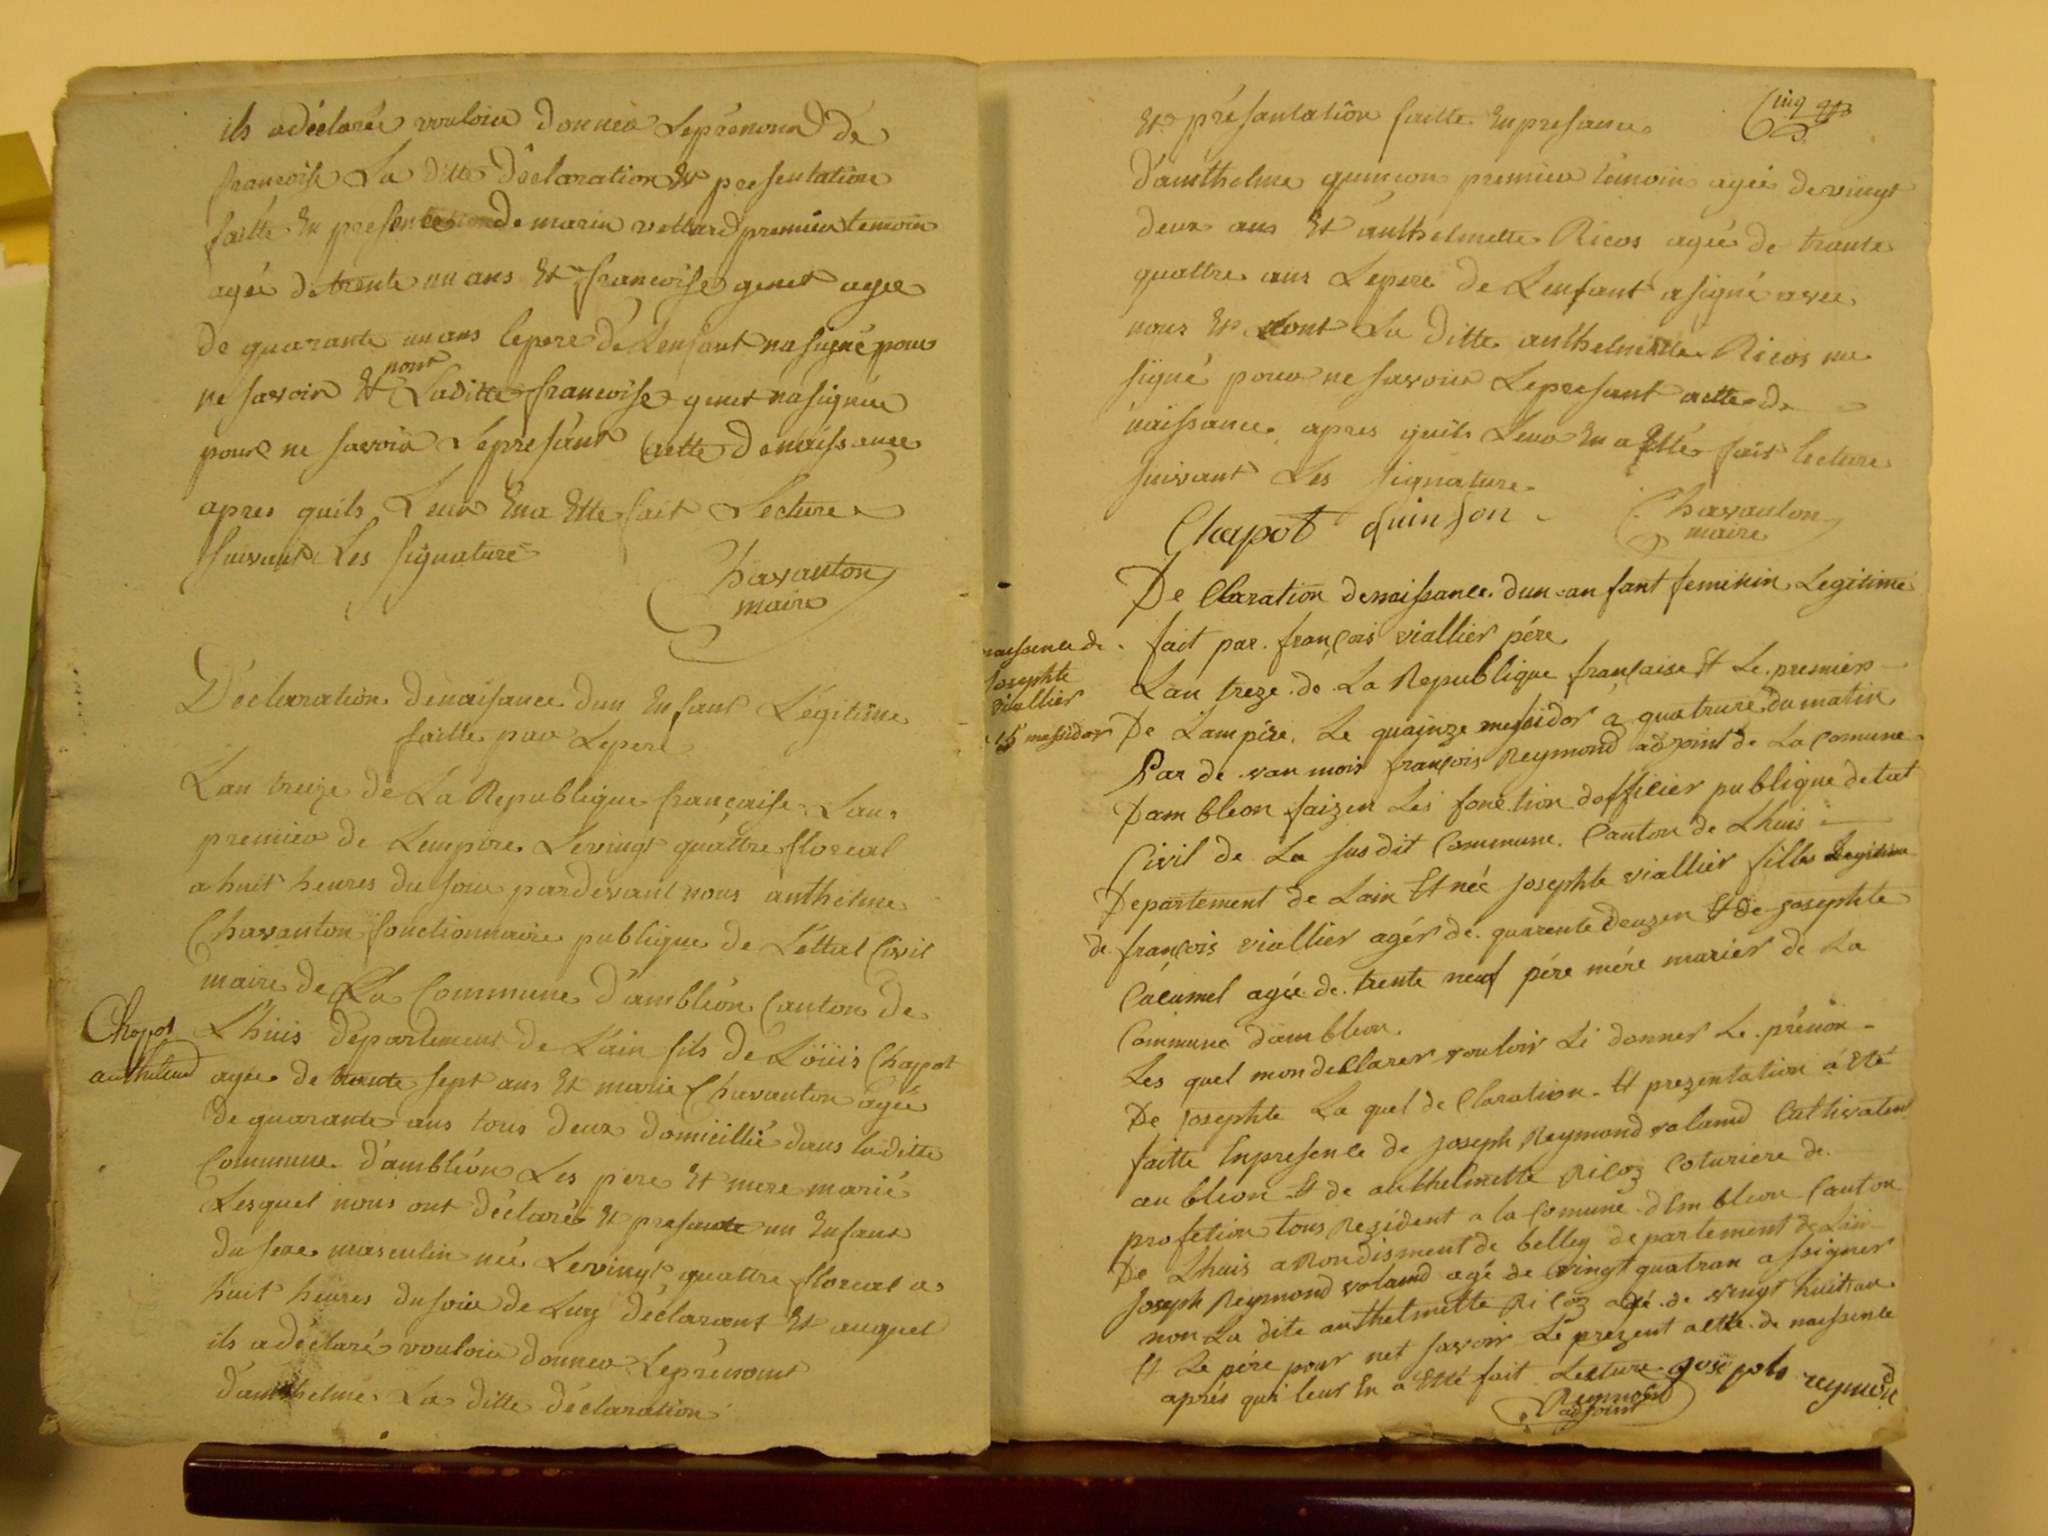 ils a déclarée vouloir donner Le prénom de
francoise La ditte déclaration Et presentation
faitte En presence de marin vettard premier temoin
agée de trente un ans Et francoise genet agee
de quarante un ans le pere de Lenfant na signé pour
ne savoir Et nont La ditte francoise genet na signée
pour ne savoir Le présant actte de naissance
apres quils Leur Ena Ette fait Lecture
suivant Les signature
Chavanton
maire
Déclaration de naisance dun Enfant Légitime
faitte par Le pere
Lan treize de La Republique francaise Lan
premier de Lempire Le vingt quattre floreal
a huit heures du soir pardevant nous anthelme
Chavanton fonctionnaire publique de Lettat Civil
maire de La Commune d'ambléon Canton de
Chapot
anthelme
Lhuis département de Lain fils de Loüis Chapot
agée de trante sept ans Et marie Chavanton agée
de quarante ans tous deux domicillié dans la ditte
Commune d'ambléon Les pere Et mere marié
Lesquel nous ont déclaré Et presante un Enfant
du sexe masculin née Le vingt quattre floreal a
huit heures du soir de Luy déclarant Et auquel
ils a déclaré vouloir donner Le prénom
d'anthelme La ditte déclaration
Cinq
Et présantation faitte En presance
d'amthelme quinson premier témoin agée de vingt
deux ans Et anthelmette Ricos agée de trante
quattre ans Le pere de Lenfant a signé avec
nous Et dont La ditte anthelmette Ricos na
signé pour ne savoir Le presant actte de
naissance apres quils Leur En a Etté fait lecture
suivant Les signature
Chapot quinson
Chavanton
maire
De Claration de naissance dun an fant feminin Legitime
fait par françois viallier pére
naissence de
Josephte
viallier
15 messidor
Lan treze de La Republique française Et Le premier
De Lampire Le quainze messidor à quatrure du matin
Par de van mois françois Reymond adjoint de La Comune
Dambleon faizen Les fonction dofficier publique detat
Civil de La susdit Commune Canton de Lhuis
Departement de Lain Et née Josephte viallier fille Legitime
de françois viallier agér de quarente deuzen Et de Josephte
Cacumel agée de trente neuf pére mére mariér de La
Commune dambleon
Les quel mon declarer vouloir Li donner Le prénon
De Josephte La quel de Claration Et prezentation à Eté
faitte Enpresence de Joseph Reymond valamd Cultivateur
au bleon Et de anthelmette Ricoz Coturiere de
profetion tous Resident a la Comune d Em bleon Canton
De Lhuis a Rondisment de belley departement de Lain
Joseph Reymond volamd agé de vingt quatran a ssigner
non La dite anthelmette Ricoz agé de vingt huit an
Et Le pére pour net savoir Le prezent actte de naissence
aprés qui leur En a Eté fait Lecture Joseph reymond
Reymond
adjoint